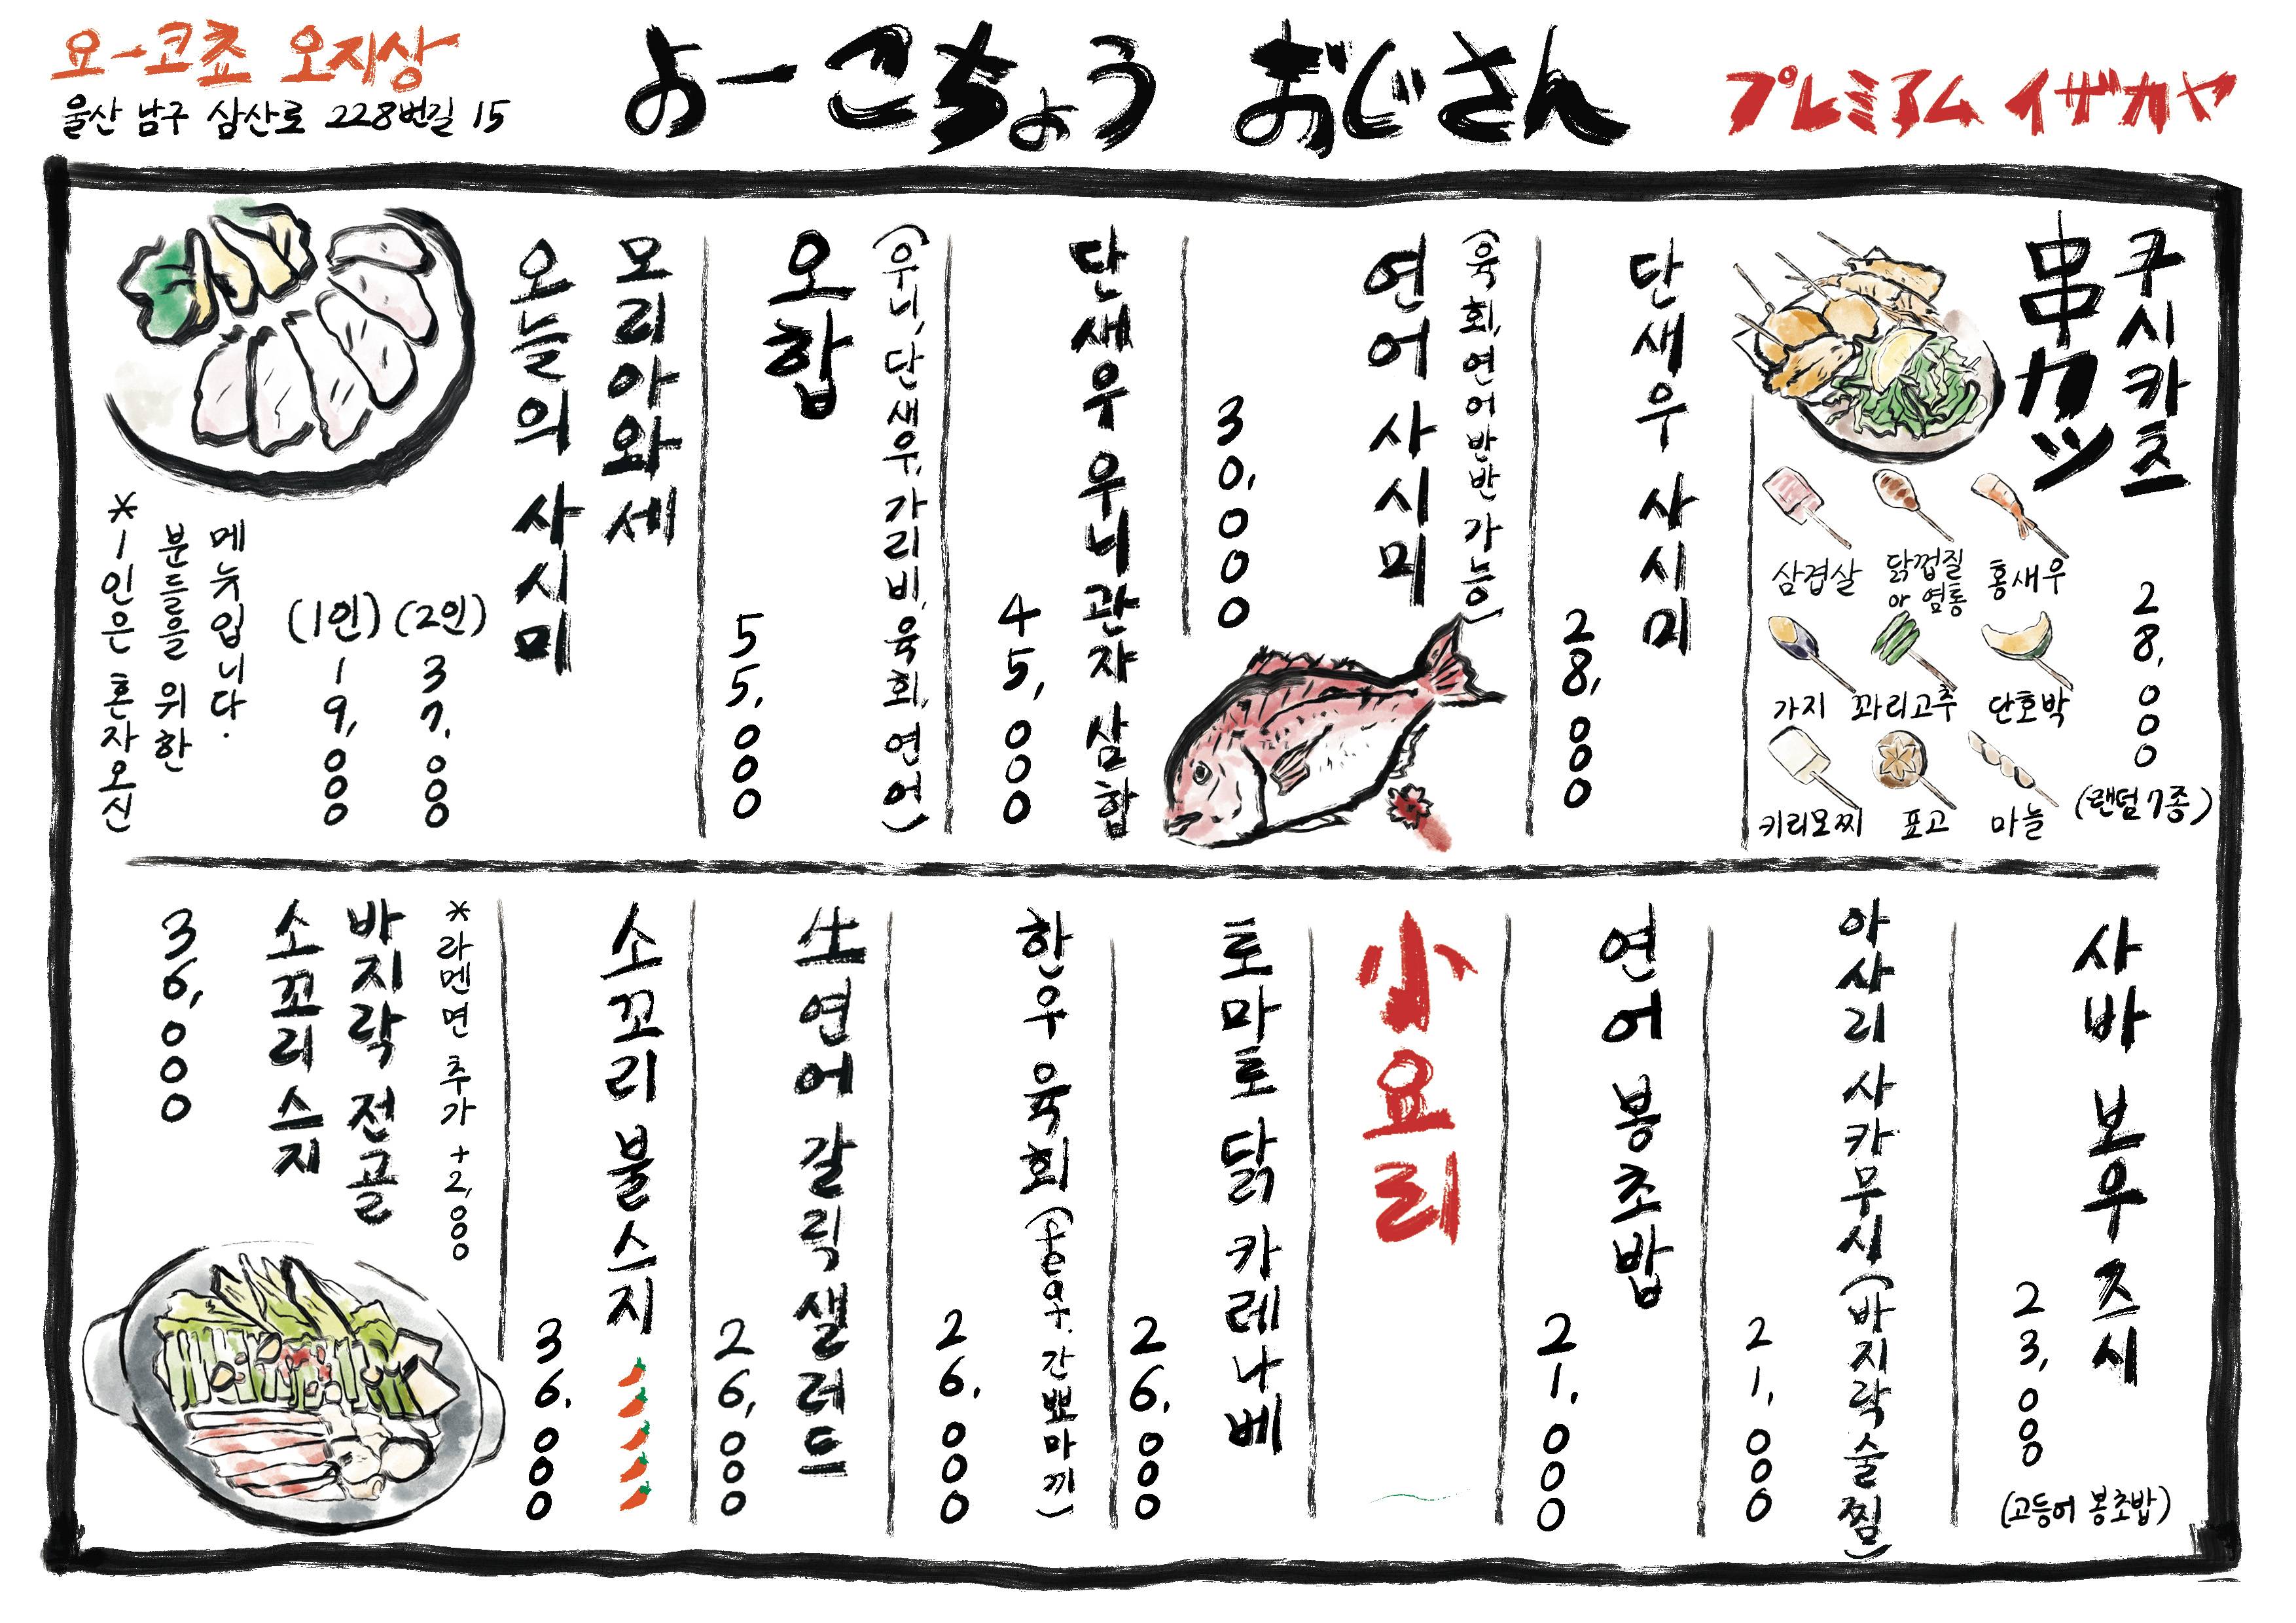 요-코쵸 오지상
울산 남구 삼산로 228번길 15
よーこちょう おじさん
プレミアム イザカヤ
쿠시카츠
串カツ
28,000
(랜덤 7종)
홍새우
닭껍질
or 염통
삼겹살
단호박
꽈리고추
가지
마늘
표고
키리모찌
단새우 사시미
28,000
(육회, 연어 반반 가능)
연어 사시미
30,000
단새우 우니 관자 삼합
45,000
(우니, 단새우, 가리비, 육회, 연어)
오합
55,000
모리아와세
오늘의 사시미
(2인)
37,000
(1인)
19,000
메뉴입니다.
분들을 위한
*1인은 혼자오신
사바 보우 즈시
23,000
(고등어 봉초밥)
아사리 사카무시 (바지락 술찜)
21,000
연어 봉초밥
21,000
小요리
토마토 닭 카레나베
26,000
한우 육회 (단새우, 간뽀마끼)
26,000
生연어 갈릭 샐러드
26,000
소꼬리 불스지
36,000
*라멘면 추가 +2,000
바지락 전골
소꼬리 스지
36,000